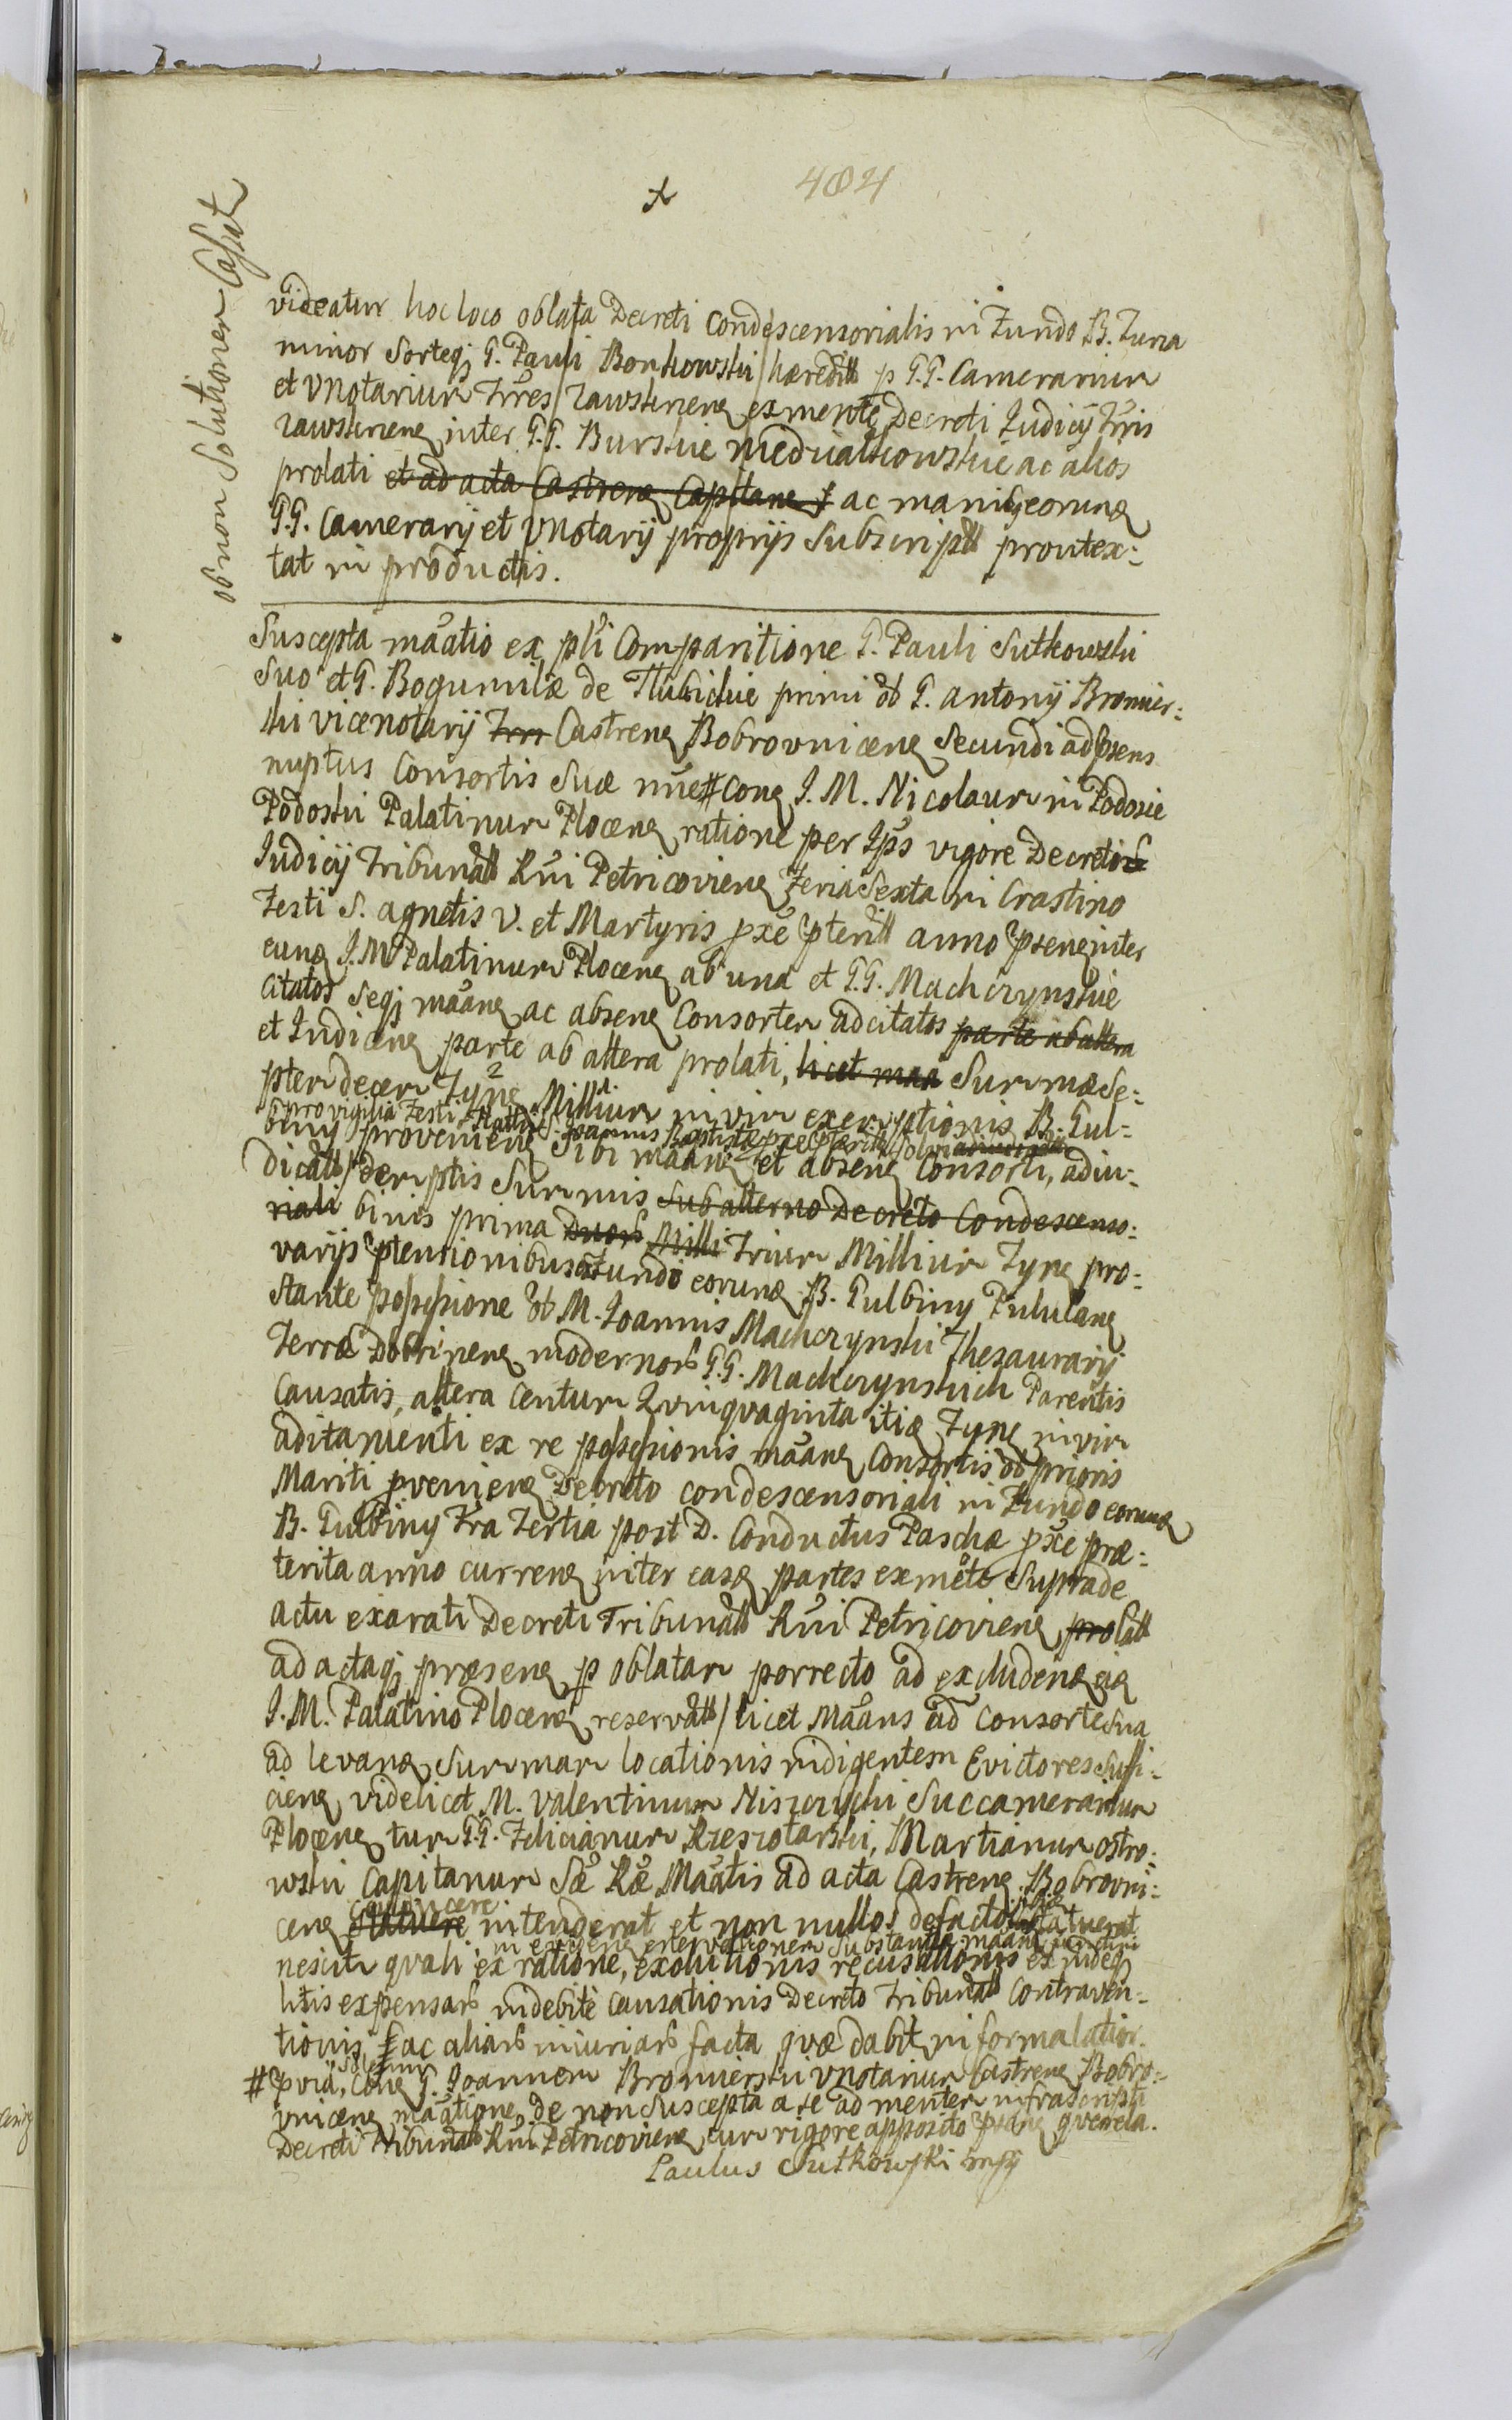 404
ob non Solutionem Cassat
videatur hoc loco oblata Decreti Condescensorialis in Fundo B. Zura
minor Sorteq; G. Pauli Bonkowski hæredit p G.G. Camerarium
et VNotarium Trres Zawskrnenę ex mente Decreti Iudicij Trris
Zawskrnenę inter G.G. Burskie Niedviałkowskie ac alios
prolati et ad acta Castrenę Capitane ac manibq eorunę
G.G. Camerarij et VNotarij proprijs Subscript prout ex:
tat in productis.
Suscepta māatio ex pli Comparitione G. Pauli Sutkowski
Suo et G. Bogumilæ de Tłubickie primi ōb G. Antonij Bromier:
ski vicenotarij Trrr Castrenę Bobrovnicenę Secundi ad psens
nuptus Consortis Suæ nne # Conę I. M. Nicolaum in Podosie
Podoski Palatinum Plocenę ratione per Ips vigore Decreti
Iudicij Tribunal Rni Petricovienę Feria Sexta in Crastino
Festi S. Agnetis V. et Martyris pxe pterit anno psenę inter
eunę I. M Palatinum Plocenę ab una et G.G. Machczynskie
Citatos Seq; māanę ac absenę Consortem adcitatos parte ab altera
et Indicenę parte ab altera prolati, licet maā Summæ Se:
ptemdecem Typę Millium in vim exemptionis B. Gul:
pro vigilia Festi Nattis S. Joannis Baptistæ pxe pterit Solvi adiudicatæ
biny provenienę Sibi māanę et absenę Consorti, adiu:
dicatt demptis Summis Sub alterno Decreto Condescenso:
riali binis prima Duor Milli Trium Millium Typę pro:
varijs ptensionibus Fundo eorunę B. Gulbiny Pululanę
Stante possessione ōb M. Joannis Machczynski Thesaurarij
Terræ Dobrinenę modernor G.G. Machczynskich Parentis
Causatis, altera Centum Quinquaginta itiæ Typę in vim
aditamenti ex re possessionis māanę Consortis ōb prioris
Mariti pvenienę Decreto condescensoriali in Fundo eorunę
B. Gulbiny Fra Tertia post D. Conductus Paschæ pxe præ:
terita anno currenę inter easę partes ex mēte Suprade
actu exarati Decreti Tribunal Rni Petricovienę prolatt
ad actaq; præsenę p oblatam porrecto ad excludenę eię
I. M. Palatino Plocenę reservatt licet Māans ad Consorte Sua
ad levanę Summam locationis indigentem Evictores Suffi:
cienę videlicet M. Valentinum Niszczycki Succamerarium
Plocenę tum G.G. Felicianum Rzeszotarski, Martianum Ostro:
wski Capitanum Sæ Ræ Māatis ad acta Castrenę Bobrovni:
cenę statuere intenderat et non nullos defacto statuerat
in evidenę enervationem Substantiæ māanę
nescitr quali ex ratione, exolutionis recusationis exindeq;
litis expensar indebitè Causationis Decreto Tribunal Contraven:
tionis, ac aliar iniuriar facta quæ dabit in forma latior.
# pvia, Solenni Conę G. Joannem Bromierski VNotarium Castrenę Bobro:
vnicenę māatione, de non Suscepta a se ad mentem infrascripti
Decreti Tribunal Rni Petricovienę cum rigore apposito querela.
Paulus Sutkowski mpp